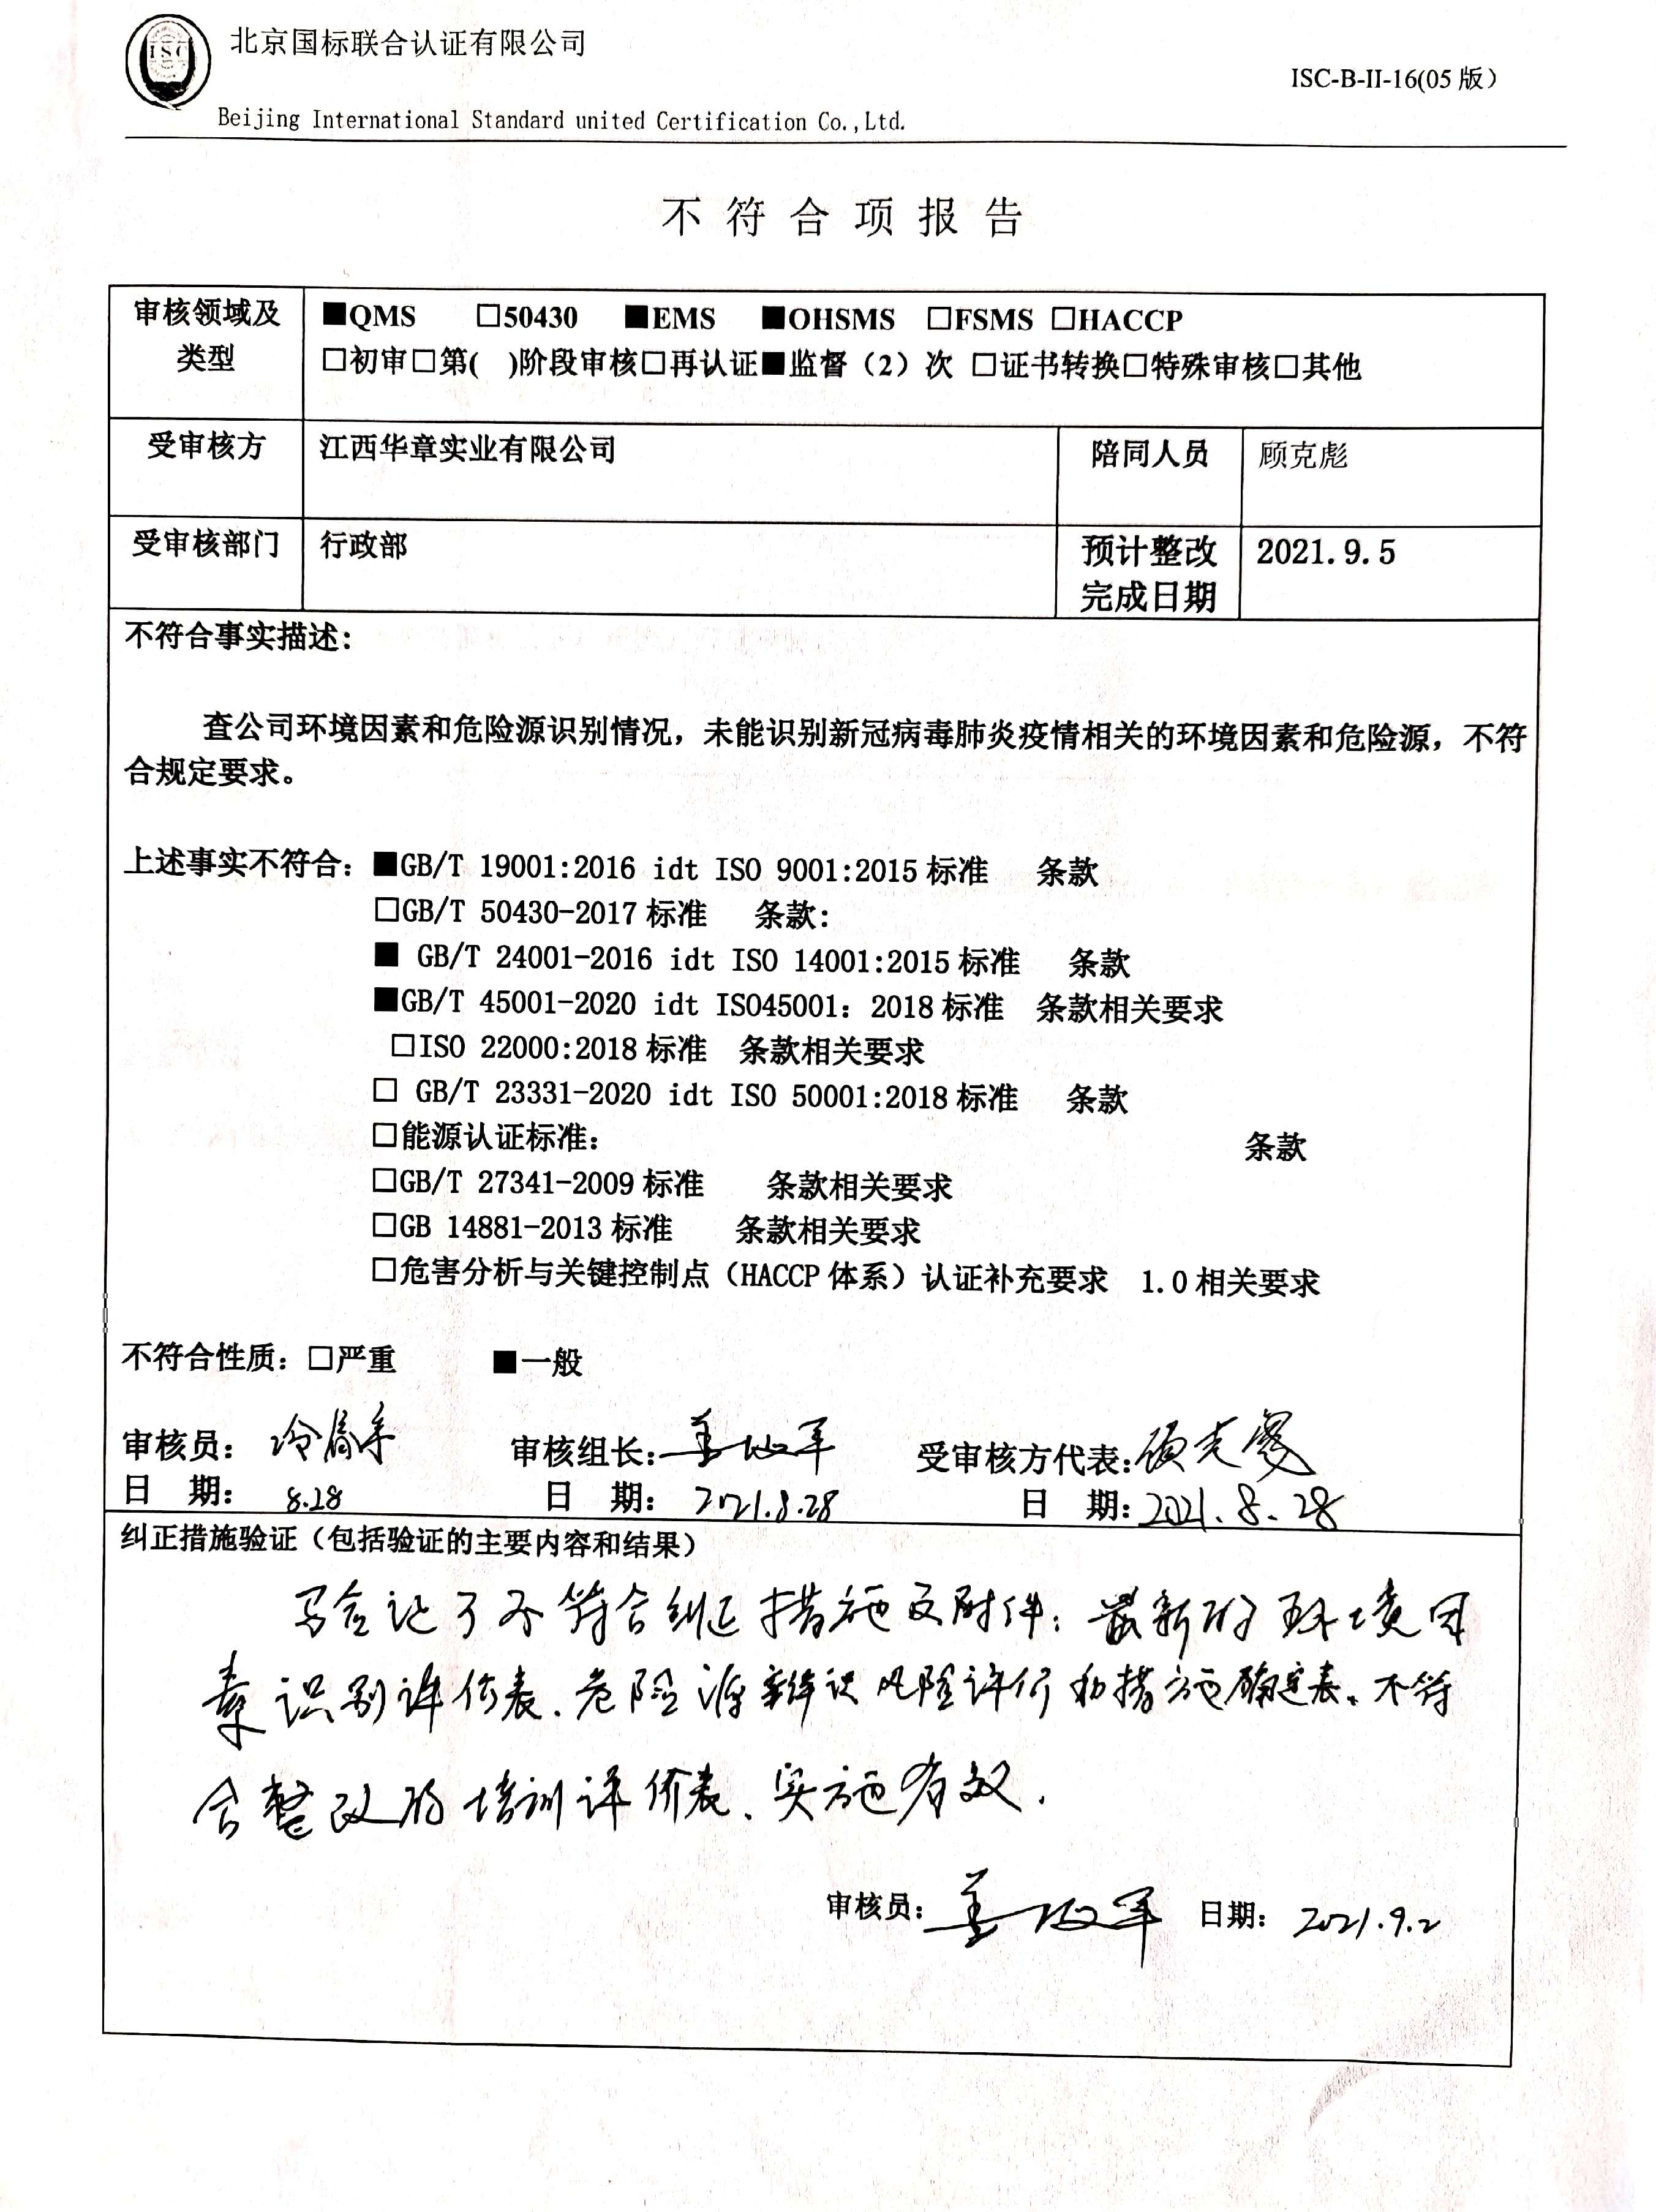 ISC
北京国标联合认证有限公司
ISC-B-II-16(05 版)
Beijing International Standard united Certification Co.,Ltd.
不 符 合 项 报 告
审核领域及类型
■QMS □50430 ■EMS ■OHSMS □FSMS □HACCP
□初审□第( )阶段审核□再认证■监督（2）次 □证书转换□特殊审核□其他
受审核方 江西华章实业有限公司 陪同人员 顾克彪
受审核部门 行政部 预计整改完成日期 2021.9.5
不符合事实描述:
查公司环境因素和危险源识别情况，未能识别新冠病毒肺炎疫情相关的环境因素和危险源，不符
合规定要求。
上述事实不符合：■GB/T 19001:2016 idt ISO 9001:2015 标准 条款
□GB/T 50430-2017 标准 条款:
■ GB/T 24001-2016 idt ISO 14001:2015 标准 条款
■GB/T 45001-2020 idt ISO45001：2018 标准 条款相关要求
□ISO 22000:2018 标准 条款相关要求
□ GB/T 23331-2020 idt ISO 50001:2018 标准 条款
□能源认证标准: 条款
□GB/T 27341-2009 标准 条款相关要求
□GB 14881-2013 标准 条款相关要求
□危害分析与关键控制点（HACCP 体系）认证补充要求 1.0 相关要求
不符合性质：□严重 ■一般
审核员: 审核组长: 受审核方代表: 顾克彪
日 期: 8.28 日 期: 2021.8.28 日 期: 2021.8.28
纠正措施验证（包括验证的主要内容和结果）
验证了不符合纠正措施及附件：最新的环境因
素识别评价表、危险源辨识风险评价和措施确定表、不符
合整改的培训评价表、实施有效.
审核员: 日期: 2021.9.2